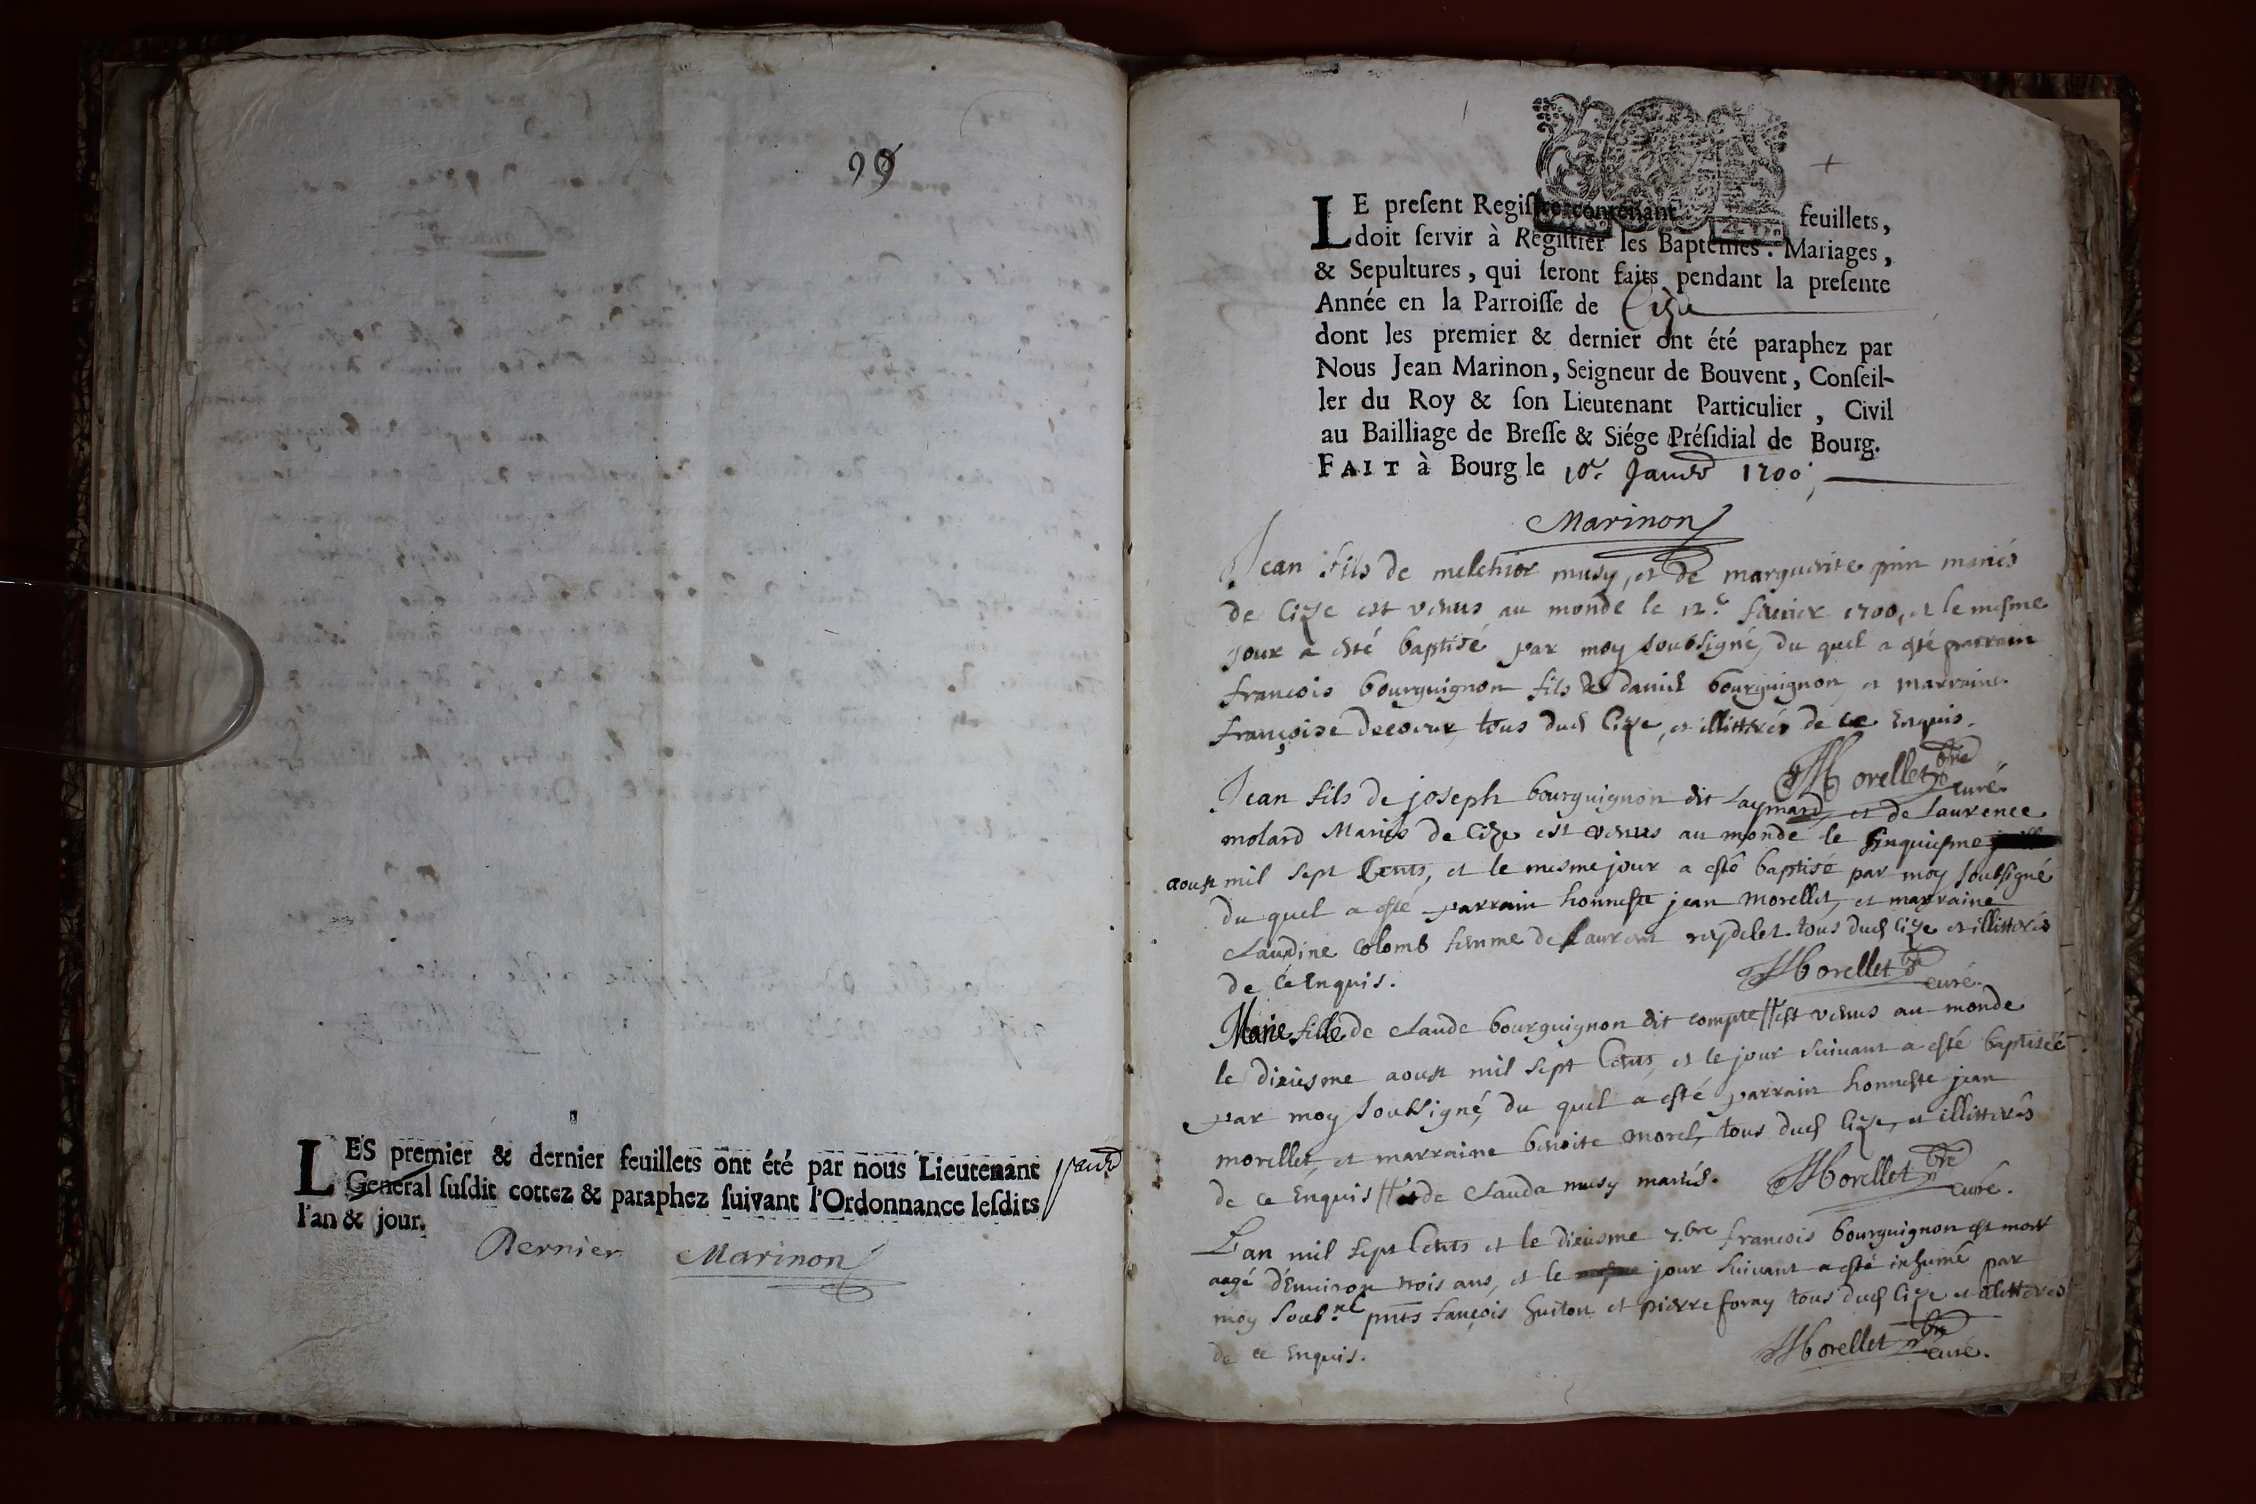 99
LES premier & dernier feuillets ont été par nous Lieutenant
General susdit cottez & paraphez suivant l'Ordonnance lesdits
l'an & jour.
Dernier Marinon
LE present Registre contenant feuillets,
doit servir à Registrer les Baptêmes. Mariages,
& Sepultures, qui seront faits pendant la presente
Année en la Parroisse de Cize
dont les premier & dernier ont été paraphez par
Nous Jean Marinon, Seigneur de Bouvent, Conseil-
ler du Roy & son Lieutenant Particulier, Civil
au Bailliage de Bresse & Siége Présidial de Bourg.
FAIT à Bourg le 10e. Janvr 1700
Marinon
Jean fils de melchior musy, et de marguerite pin mariés
de Cize est venus au monde le 12e feurier 1700, et le mesme
jour a esté baptisé par moy soubsigné, du quel a esté parrain
francois bourguignon fils de daniel bourguignon et marraine
françoise decoeur, tous dud Cize, et illitterés de ce Enquis.
Morellet pbre curé
Jean fils de joseph bourguignon dit Laymard, et de Laurence
molard Mariés de Cize est venus au monde le sinquiesme
aoust mil sept Cents, et le mesme jour a esté baptisé par moy soubsigné
du quel a esté parrain honneste jean morellet, et marraine
Claudine Colomb femme de Laurent reydelet tous dud Cize et illitterés
de ce Enquis.
Morellet pbre curé.
Marie fille de Claude bourguignon dit compte // est venus au monde
le dixiesme aoust mil sept Cents, et le jour suivant a esté baptiseé
par moy soubsigné, du quel a esté parrain honneste jean
morellet, et marraine benoite morel, tous dud Cize, et illitterés
de ce Enquis // et de Clauda musy mariés.
Morellet pbre curé.
L'an mil sept Cents et le dixiesme 7bre francois bourguignon est mort
aagé d'Enuiron trois ans, et le jour suivant a esté inhumé par
moy soubné pnts fançois huiton et pierre foray tous dud Cize et illitterés
de ce Enquis.
Morellet pbre curé.